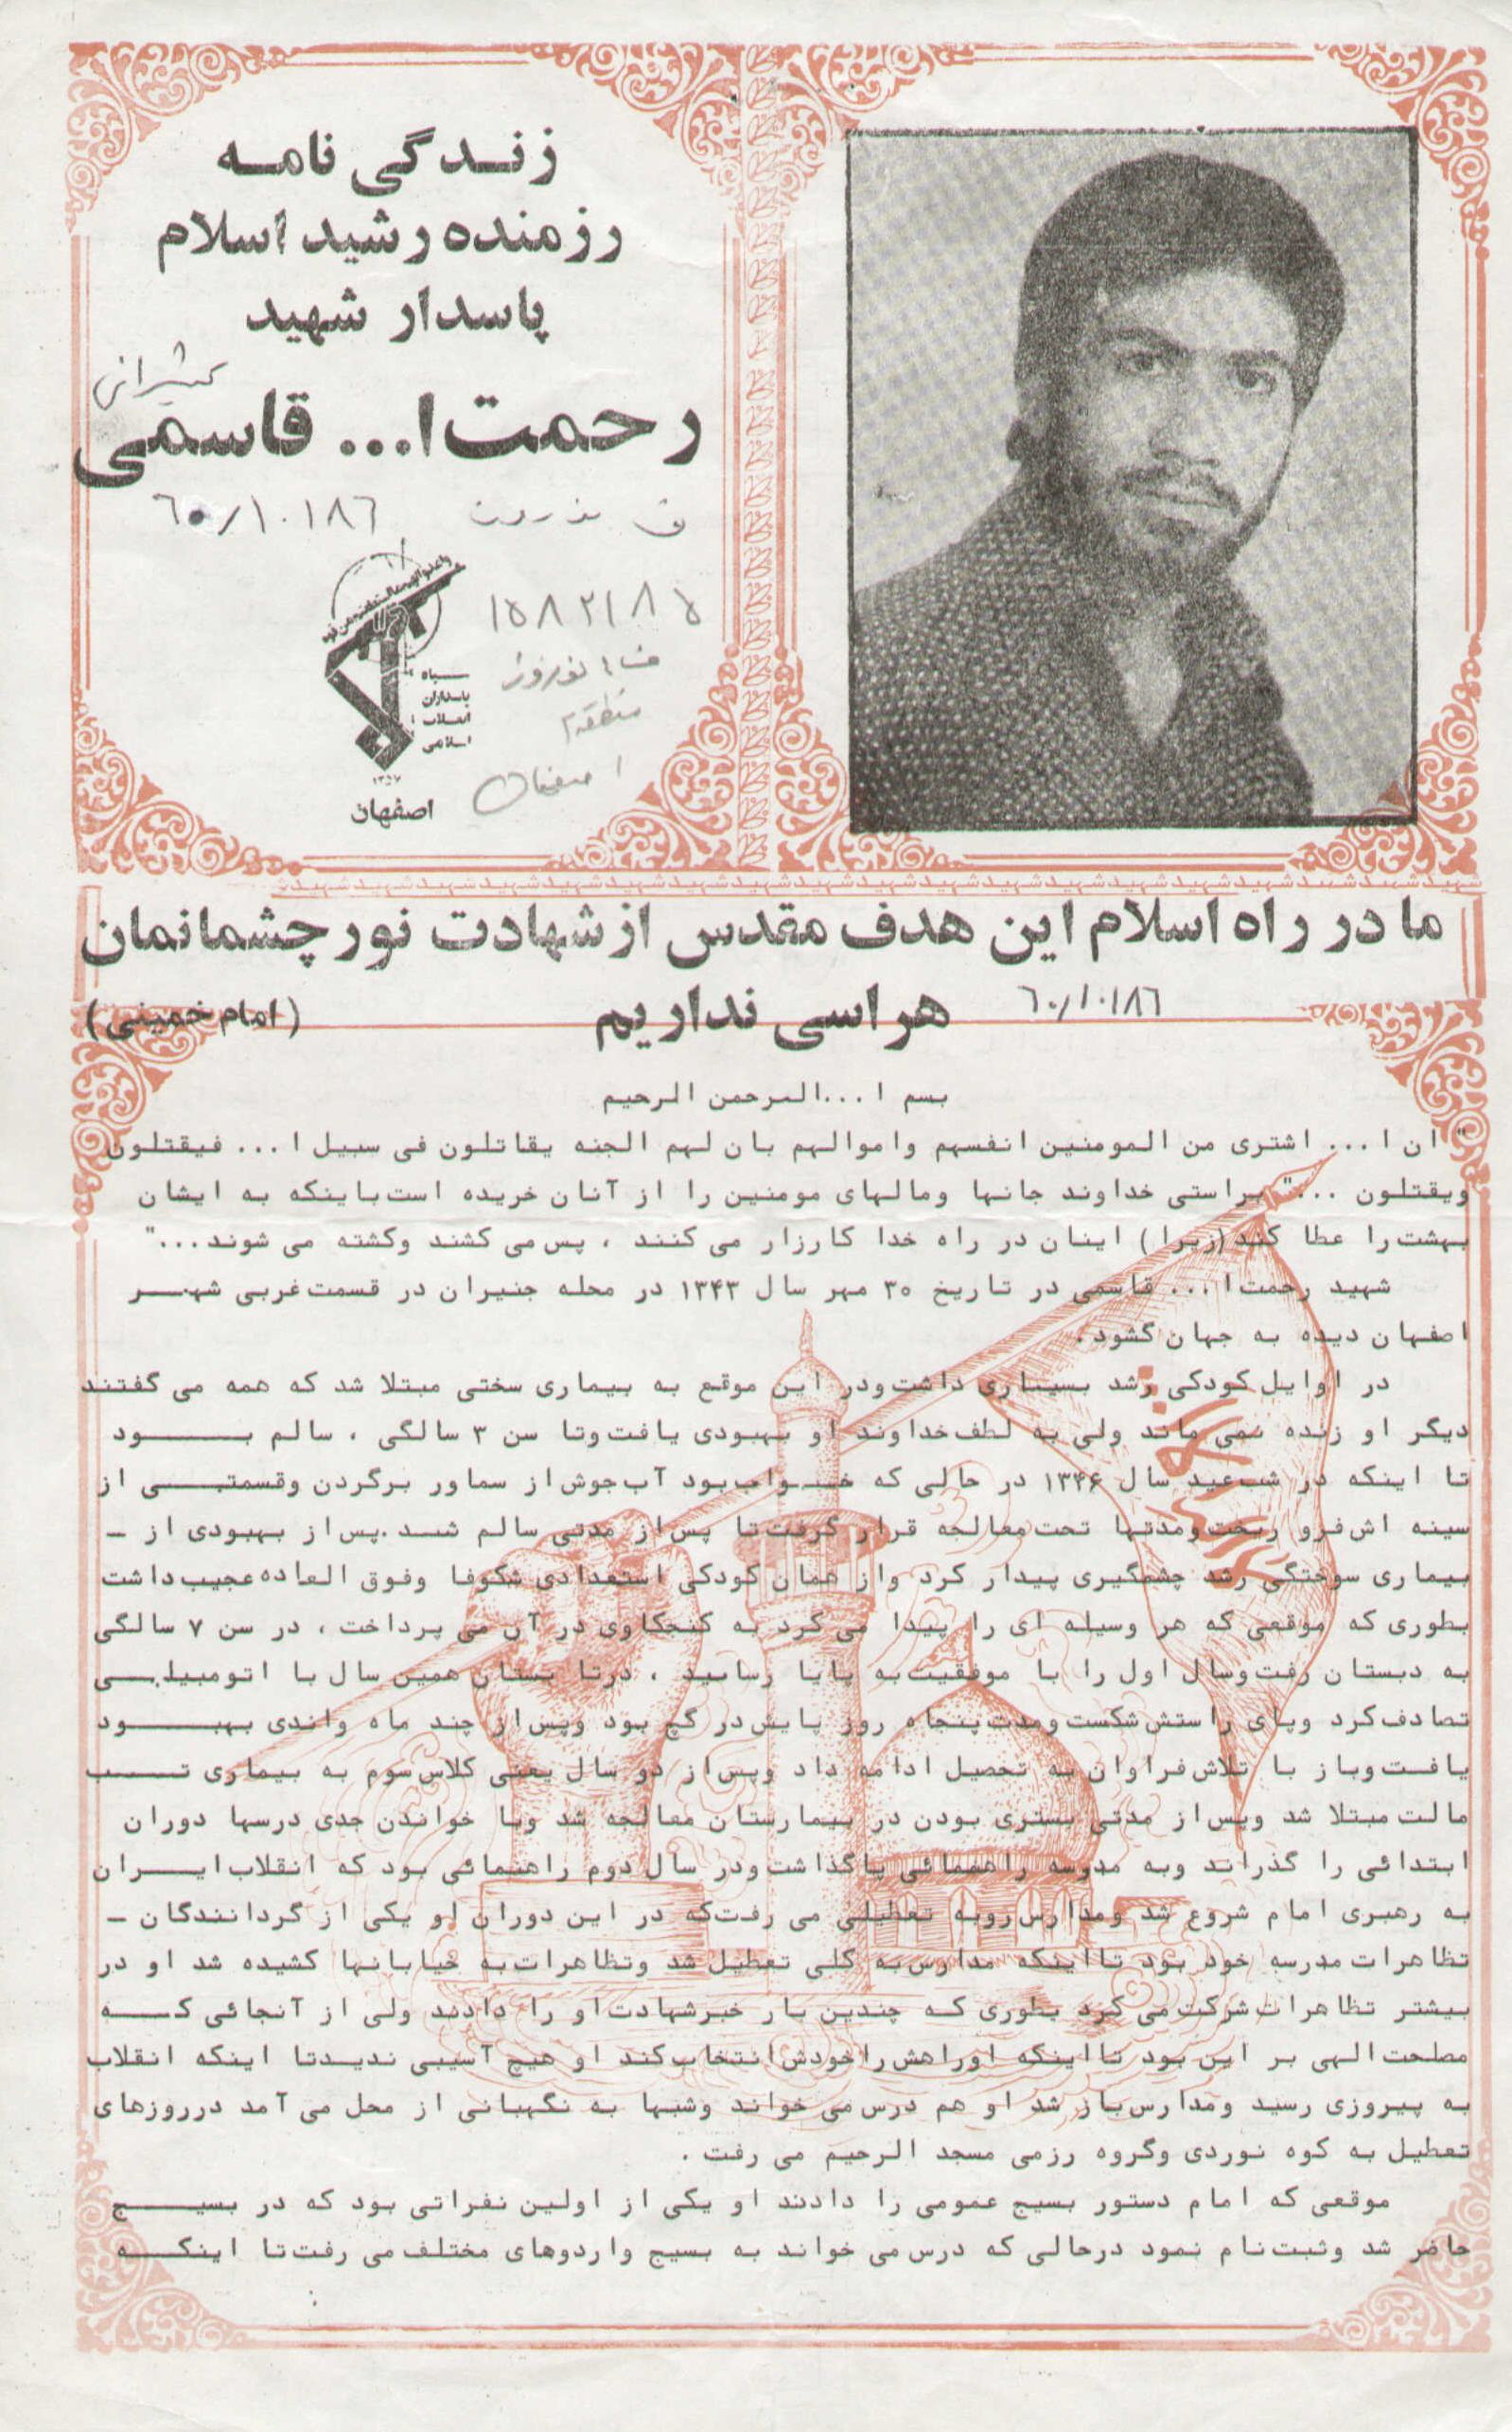 زندگی نامه
رزمنده رشید اسلام
پاسدار شهید
رحمت ا... قاسمی
۶۰/۱۰۱۸۶
۱۵۸۲۱۸۵
منطقه ۲
اصفهان
سپاه
پاسداران
انقلاب
اسلامی
۱۳۵۷
اصفهان
شهید شهید شهید شهید شهید شهید شهید شهید شهید شهید شهید شهید شهید شهید شهید شهید شهید شهید شهید
ما در راه اسلام این هدف مقدس از شهادت نور چشمانمان
هراسی نداریم ۶۰/۱۰۱۸۶
(امام خمینی)
بسم ا...الرحمن الرحیم
" ان ا... اشتری من المومنین انفسهم واموالهم بان لهم الجنه یقاتلون فی سبیل ا... فیقتلون
ویقتلون ..." براستی خداوند جانها ومالهای مومنین را از آنان خریده است باینکه به ایشان
بهشت را عطا کند (زیرا) اینان در راه خدا کارزار می کنند ، پس می کشند وکشته می شوند..."
شهید رحمت ا... قاسمی در تاریخ ۳۰ مهر سال ۱۳۴۳ در محله جنیران در قسمت غربی شهر
اصفهان دیده به جهان گشود.
در اوایل کودکی رشد بسیاری داشت ودر این موقع به بیماری سختی مبتلا شد که همه می گفتند
دیگر او زنده نمی ماند ولی به لطف خداوند او بهبودی یافت وتا سن ۳ سالگی ، سالم بود
تا اینکه در شب عید سال ۱۳۴۶ در حالی که خواب بود آب جوش از سماور برگردن وقسمتی از
سینه اش فرو ریخت ومدتها تحت معالجه قرار گرفت تا پس از مدتی سالم شد .پس از بهبودی از -
بیماری سوختگی رشد چشمگیری پیدار کرد واز همان کودکی استعدادی شکوفا وفوق العاده عجیب داشت
بطوری که موقعی که هر وسیله ای را پیدا می کرد به کنجکاوی در آن می پرداخت ، در سن ۷ سالگی
به دبستان رفت وسال اول را با موفقیت به پایا رسانید ، درتا بستان همین سال با اتومبیلی
تصادف کرد وپای راستش شکست ومدت پنجاه روز پایش در گچ بود وپس از چند ماه واندی بهبود
یافت وباز با تلاش فراوان به تحصیل ادامه داد وپس از دو سال یعنی کلاس سوم به بیماری تب
مالت مبتلا شد وپس از مدتی بستری بودن در بیمارستان معالجه شد وبا خواندن جدی درسها دوران
ابتدائی را گذراند وبه مدرسه راهنمائی پاگذاشت ودر سال دوم راهنمائی بود که انقلاب ایران
به رهبری امام شروع شد ومدارس روبه تعطیلی می رفت که در این دوران او یکی از گردانندگان -
تظاهرات مدرسه خود بود تا اینکه مدارس به کلی تعطیل شد وتظاهرات به خیابانها کشیده شد او در
بیشتر تظاهرات شرکت می کرد بطوری که چندین بار خبر شهادت او را دادند ولی از آنجائی که
مصلحت الهی بر این بود تا اینکه او راهش را خودش انتخاب کند او هیچ آسیبی ندید تا اینکه انقلاب
به پیروزی رسید ومدارس باز شد او هم درس می خواند وشبها به نگهبانی از محل می آمد درروزهای
تعطیل به کوه نوردی وگروه رزمی مسجد الرحیم می رفت .
موقعی که امام دستور بسیج عمومی را دادند او یکی از اولین نفراتی بود که در بسیج
حاضر شد وثبت نام نمود درحالی که درس می خواند به بسیج واردوهای مختلف می رفت تا اینکه